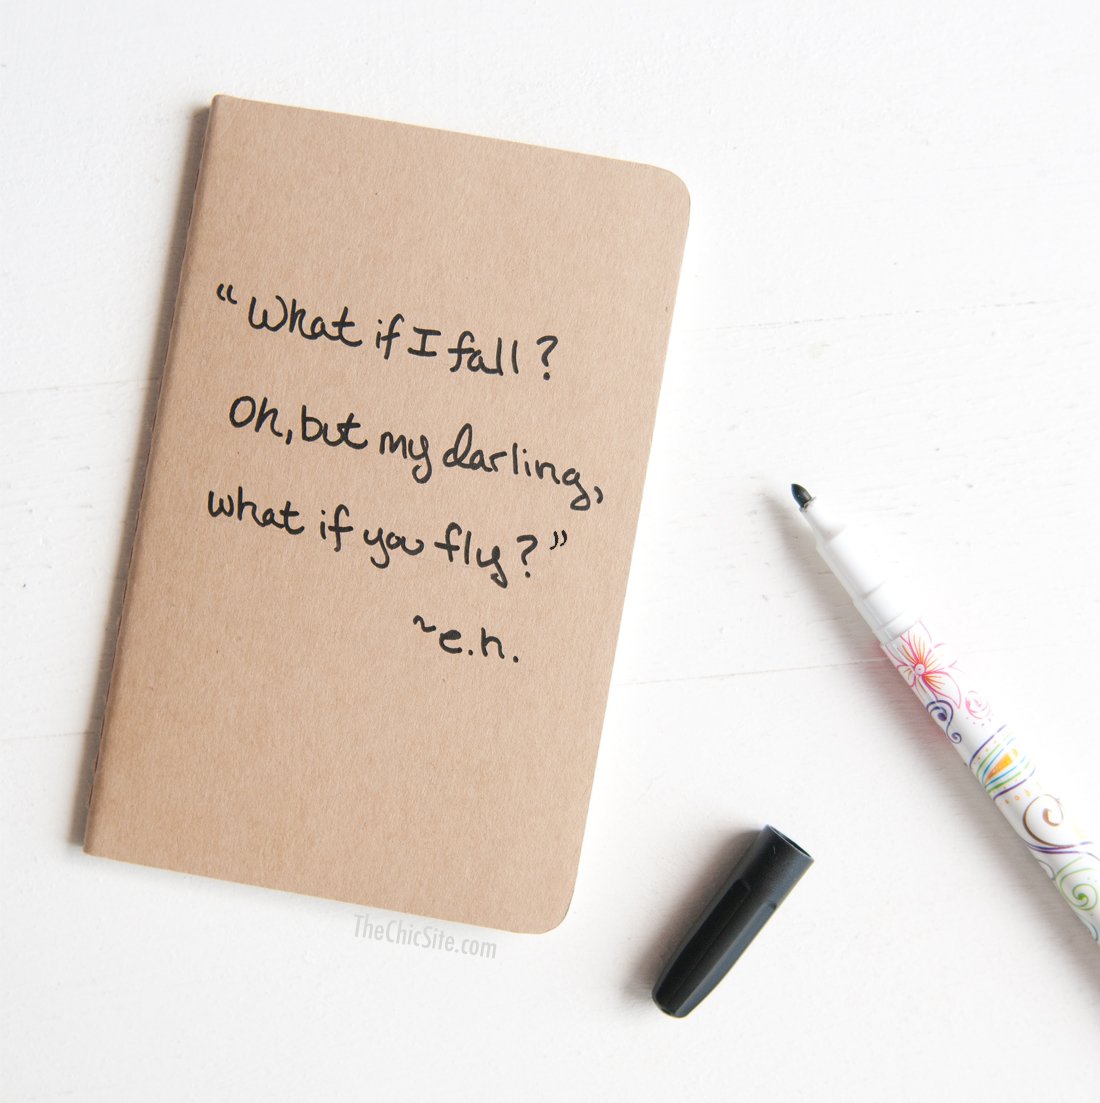 “What if I fall?
Oh, but my darling,
what if you fly?”
~e.h.
TheChicSite.com